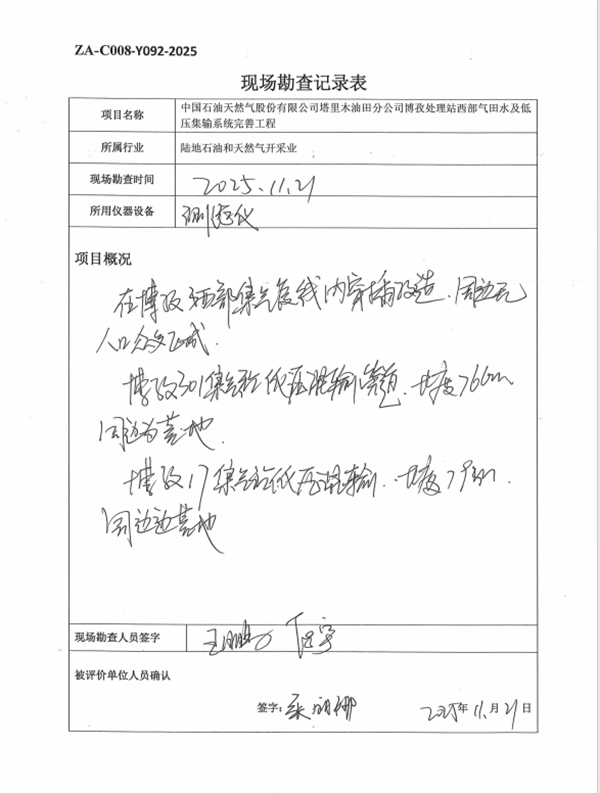 ZA-C008-Y092-2025
现场勘查记录表
项目名称
中国石油天然气股份有限公司塔里木油田分公司博孜处理站西部气田水及低
压集输系统完善工程
所属行业
陆地石油和天然气开采业
现场勘查时间
2025.11.21
所用仪器设备
测距仪
项目概况
在博孜西部集气复线内穿插改造.周边无
人口
博孜301集气站低压混输管道.长度7.66km
周边为荒地.
博孜17集气站低压混输.长度7.9km.
周边边荒地
现场勘查人员签字
王鹏
被评价单位人员确认
签字:
2025年11月21日